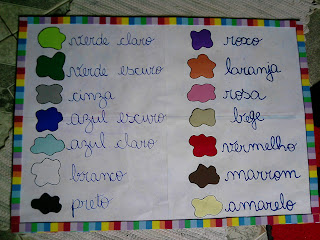 verde claro
verde escuro
cinza
azul escuro
azul claro
branco
preto
roxo
laranja
rosa
bege
vermelho
marrom
amarelo